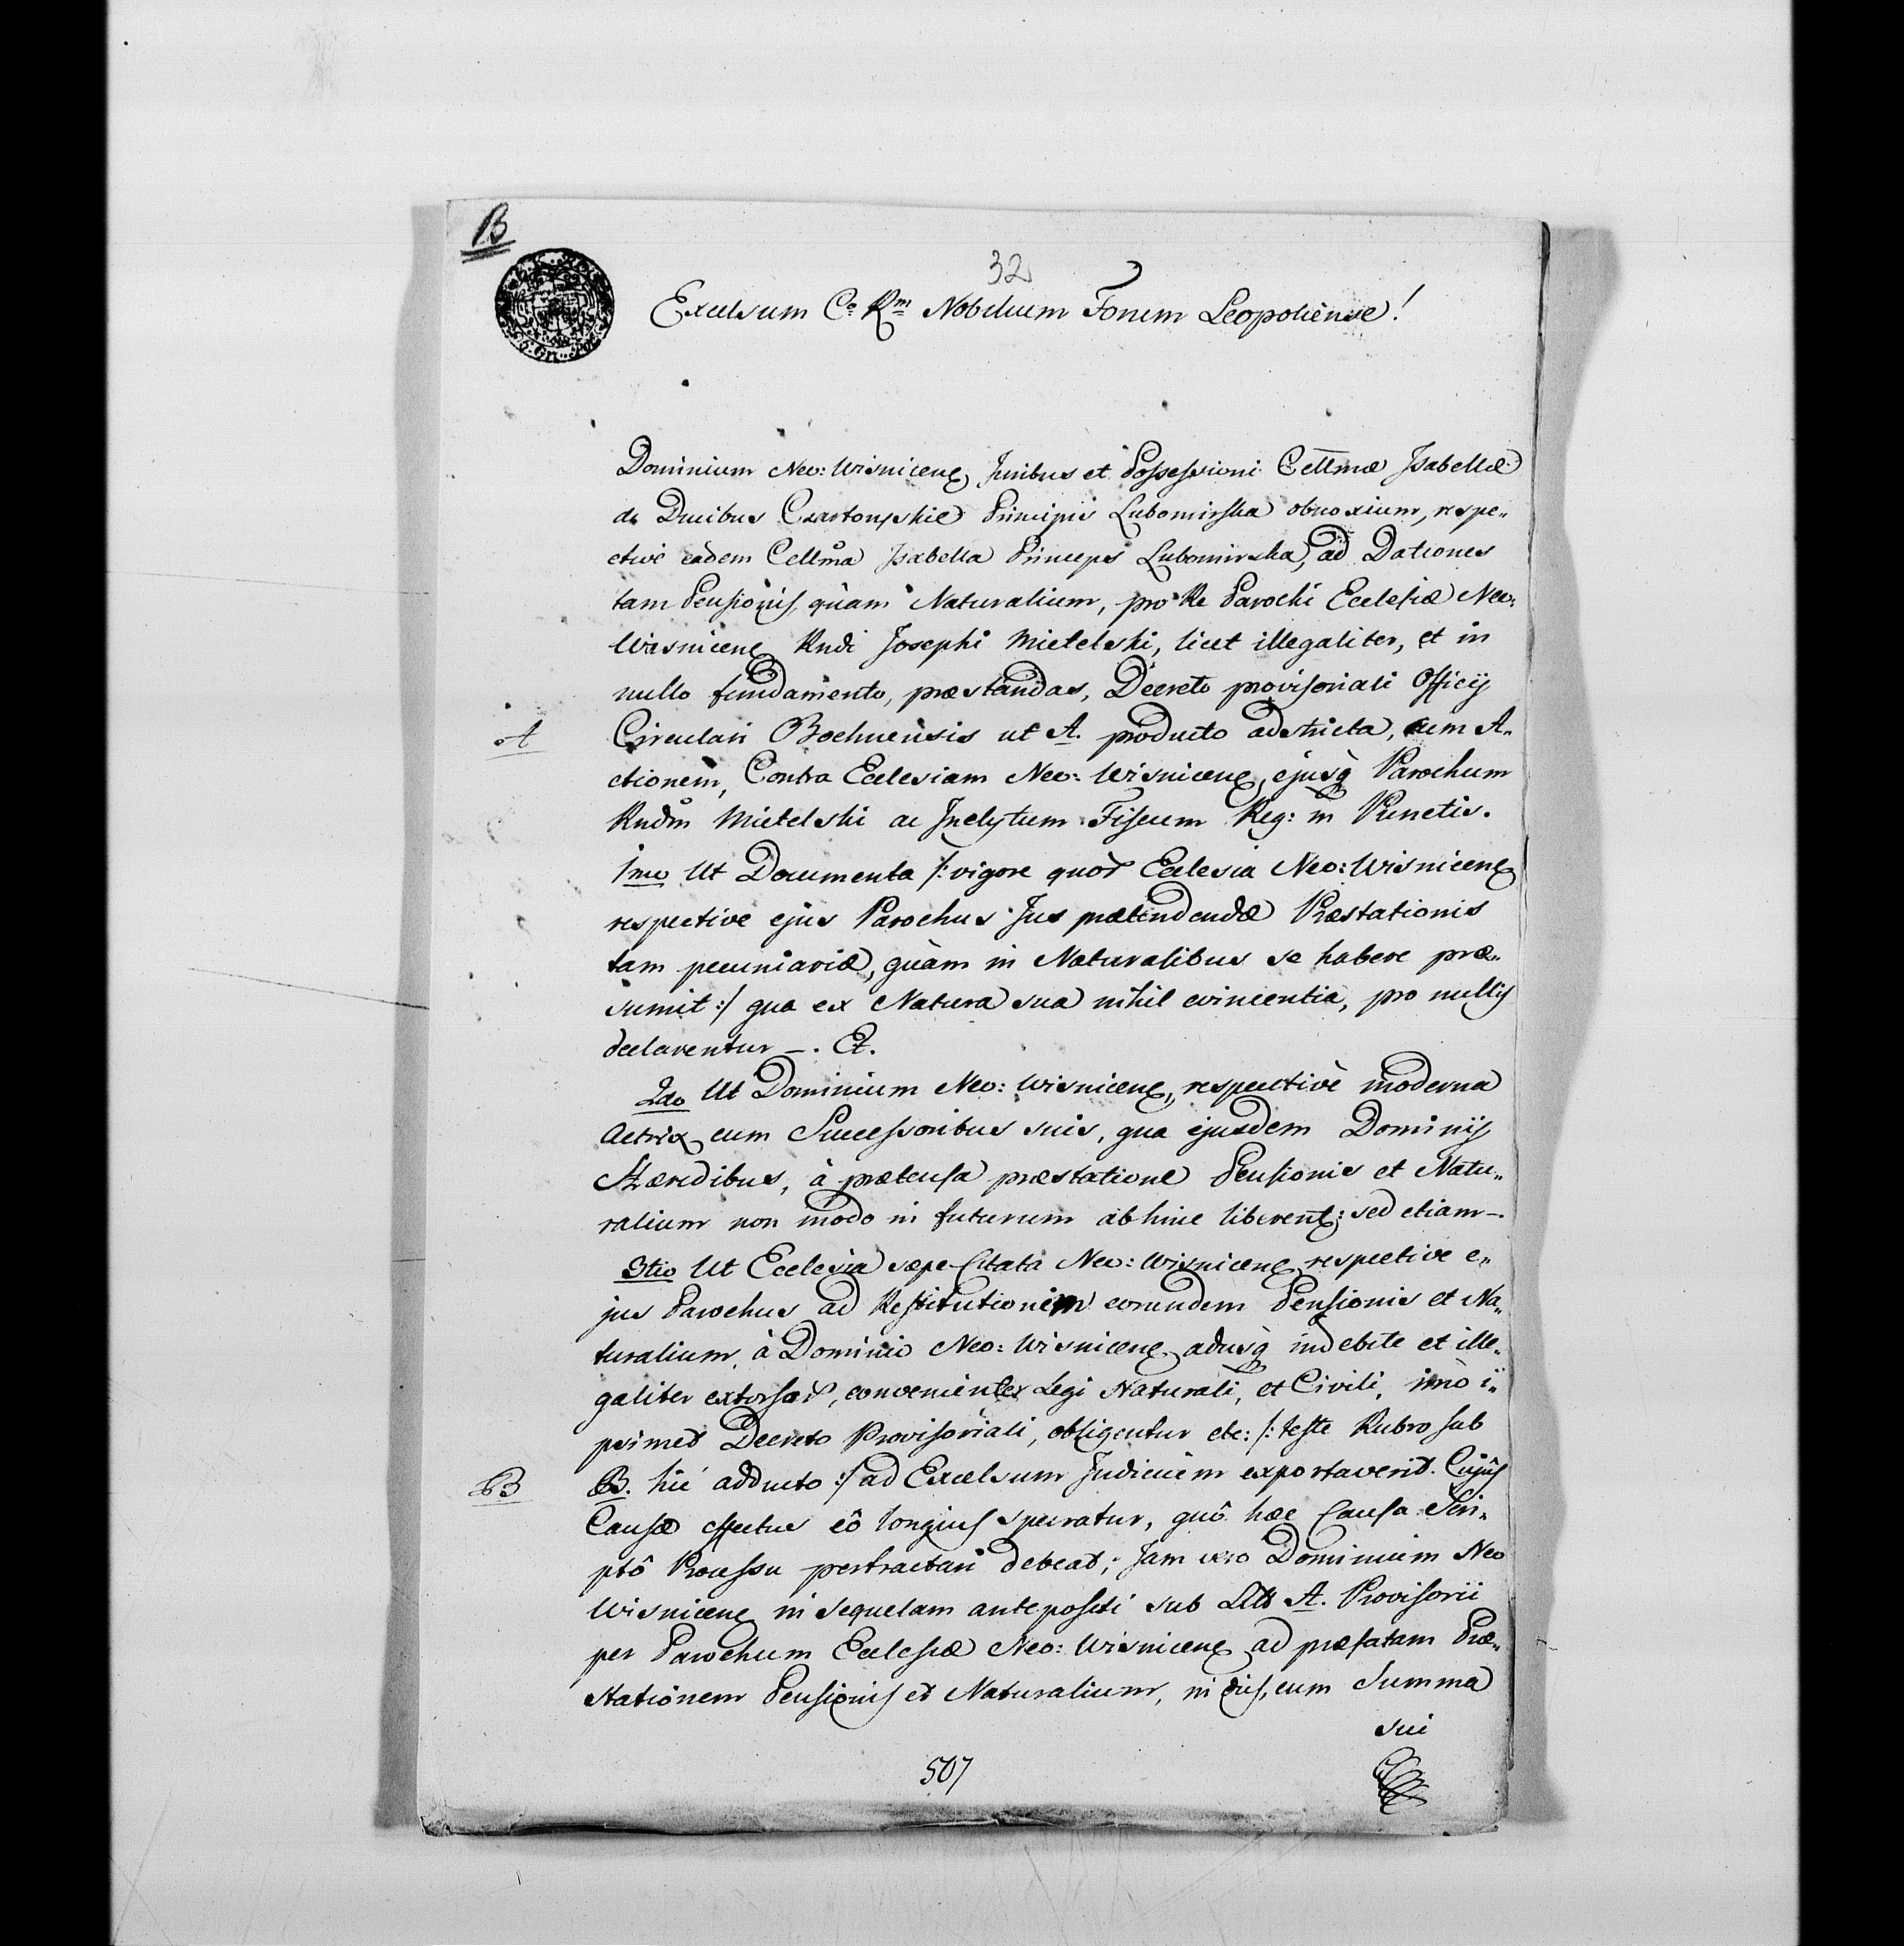 B
32
Excelsum C: R:m Nobilium Forum Leopoliense!
Dominium Neo: Wisnicene, Juribus et Possessioni Cellmæ Isabellæ
de Ducibus Czartoryskie Principis Lubomirska obnoxium, respe„
ctive eadem Cellma Isabella Princeps Lubomirska, ad Dationes
tam Pensionis, quam Naturalium, pro Re Parochi Ecclesiæ Neo:
Wisnicene Rndi Josephi Mietelski, licet illegaliter, et in
nullo fundamento, præstandas, Decreto provisoriali Officij
A
Circulari Bochnensis ut A. producto adstricta, cum A„
ctionem, Contra Ecclesiam Neo: Wisnicene, ejusq Parochum
Rndm Mietelski ac Inclytum Fiscum Reg: in Punctis.
1mo Ut Documenta /: vigore quor Ecclesia Neo: Wisnicene
respective ejus Parochus Jus prætendendæ Præstationis
tam pecuniariæ, quàm in Naturalibus se habere præ„
sumit :/ qua ex Natura sua nihil evincentia, pro nullis
declarentur —. Et.
2do Ut Dominium Neo: Wisnicene, respectivè moderna
Actrix cum Successoribus suis, qua ejusdem Dominij
Hæredibus, à prætensa præstatione Pensionis et Natu„
ralium non modo in futurum abhinc liberent; sed etiam —.
3tio Ut Ecclesia sæpe Citata Neo: Wisnicene respective e„
jus Parochus ad Restitutionem eorundem Pensionis et Na„
turalium, à Dominio Neo: Wisnicene adusq indebite et ille„
galiter extorsor, convenienter Legi Naturali, et Civili, imò i„
psimet Decreto Provisoriali, obligentur etc: /: teste Rubro sub
B
B. hic adducto :/ ad Excelsum Judicium exportaverit. Cujus
Causæ effectus eô longius speratur, quô hæc Causa Scri„
ptô Processu pertractari debeat; Jam vero Dominium Neo
Wisnicene in sequelam antepositi sub Litt A. Provisorii
per Parochum Ecclesiæ Neo: Wisnicene ad præfatam Præ„
stationem Pensionis et Naturalium, in dies, cum Summa
sui
507